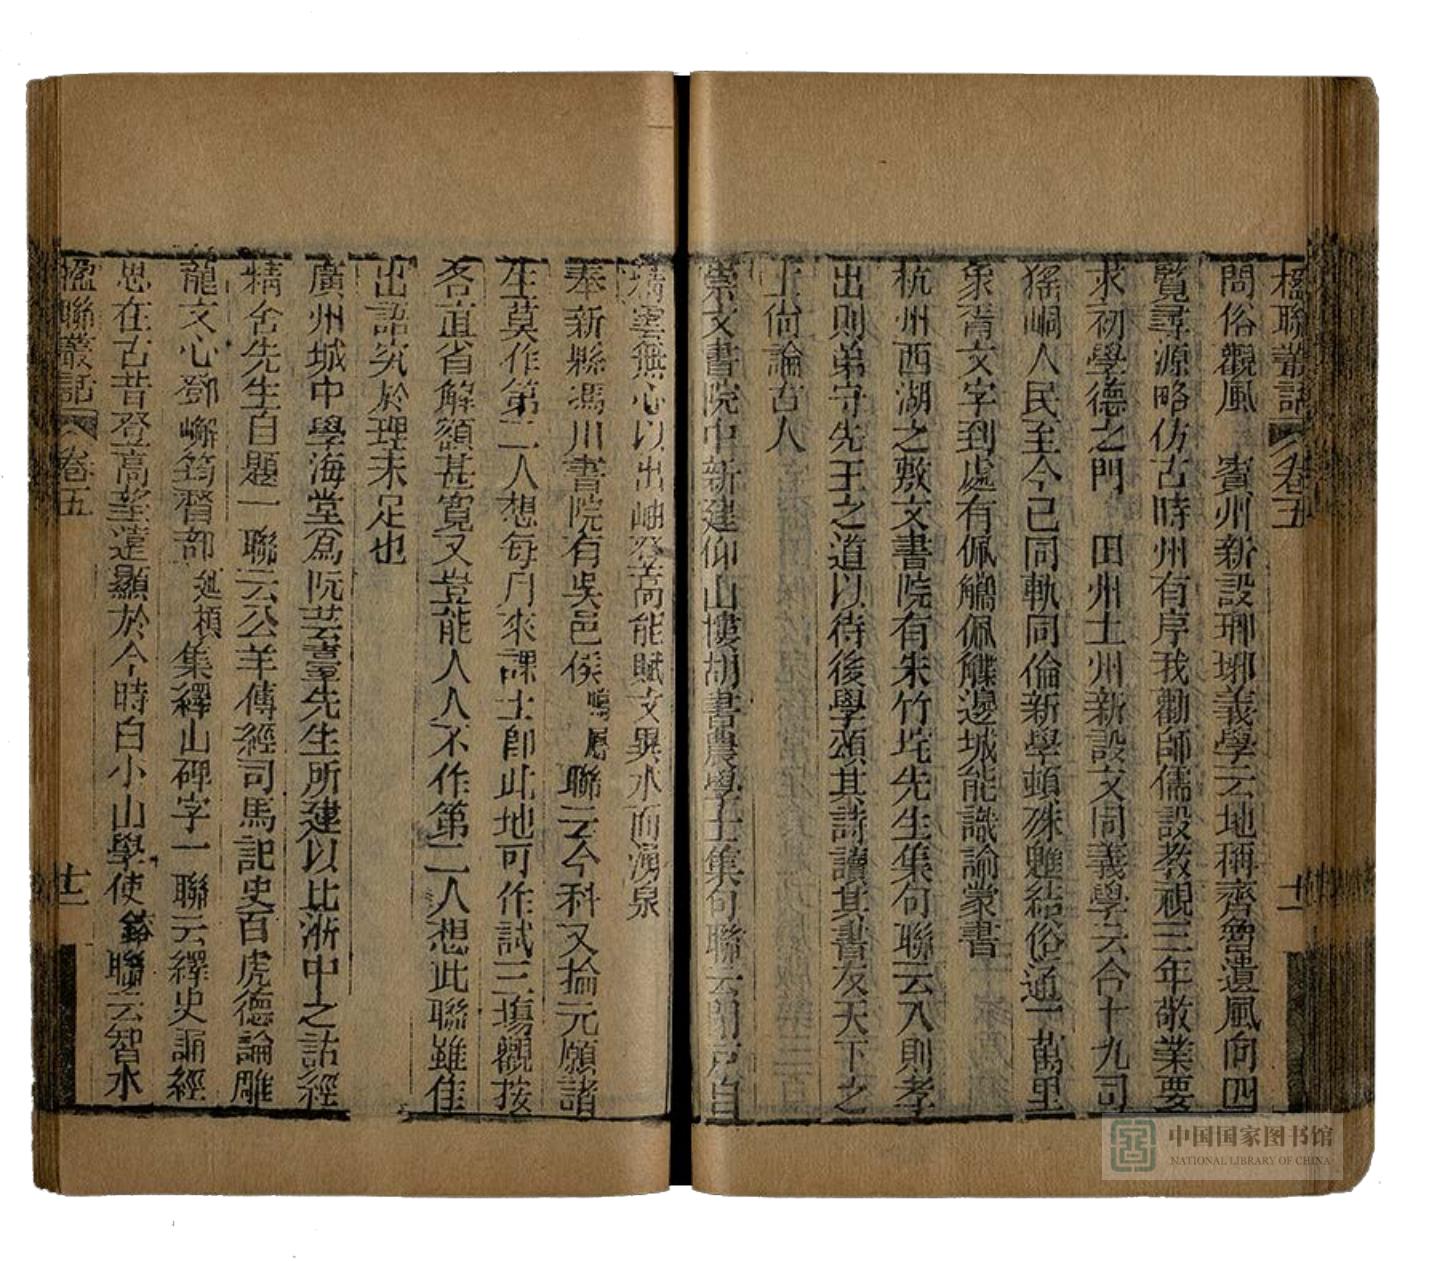 楹聯叢話 卷五 十一
問俗觀風　賓州新設瑯琊義學云地稱齊魯遺風向四
覽尋源略仿古時州有序我勸師儒設教視三年敬業要
求初學德之門　田州土州新設文同義學云合十九司
猺峒人民至今已同軌同倫新學頓殊魋結俗通一萬里
象胥文字到處有佩觿佩韘邊城能識諭蒙書
杭州西湖之敷文書院有朱竹垞先生集句聯云入則孝
出則弟守先王之道以待後學頌其詩讀其書友天下之
士尚論古人
崇文書院中新建仰山樓胡書農學士集句聯云開戸自
積雲無心以出岫登高能賦文異水而湧泉
奉新縣馮川書院有吳邑侯鳴鳳聯云今科又掄元願諸
生莫作第二人想每月來課士卽此地可作試三塲觀按
各直省解額甚寛又豈能人人不作第二人想此聯雖佳
出語究於理未足也
廣州城中學海堂爲阮芸臺先生所建以比浙中之詁經
精舍先生自題一聯云公羊傳經司馬記史百虎德論雕
龍文心鄧嶰筠督部廷楨集繹山碑字一聯云繹史誦經
思在古昔登高望遠顯於今時白小山學使鎔聯云智水
楹聯叢話 卷五 十二
中国国家图书馆
NATIONAL LIBRARY OF CHINA